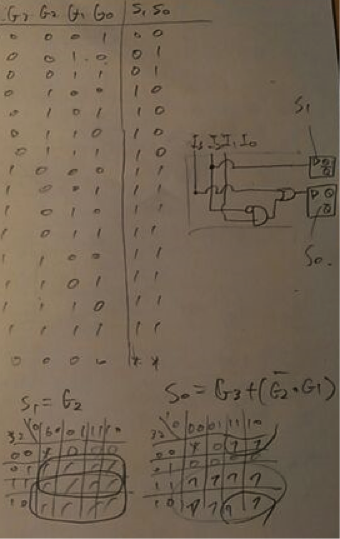 G3 G2 G1 G0 S1 S0
0 0 0 1 0 0
0 0 1 0 0 1
0 0 1 1 0 1
0 1 0 0 1 0
0 1 0 1 1 0
0 1 1 0 1 0
0 1 1 1 1 0
1 0 0 0 1 1
1 0 0 1 1 1
1 0 1 0 1 1
1 0 1 1 1 1
1 1 0 0 1 1
1 1 0 1 1 1
1 1 1 0 1 1
1 1 1 1 1 1
0 0 0 0 * *
S1
I3 I2 I1 I0
D Q
D Q
S0
S1 = G2
S0 = G3 + (G̅2 · G1)
32 10 00 01 11 10
00 * 0 0 0
01 1 1 1 1
11 1 1 1 1
10 1 1 1 1
32 10 00 01 11 10
00 * 0 1 1
01 0 0 0 0
11 1 1 1 1
10 1 1 1 1